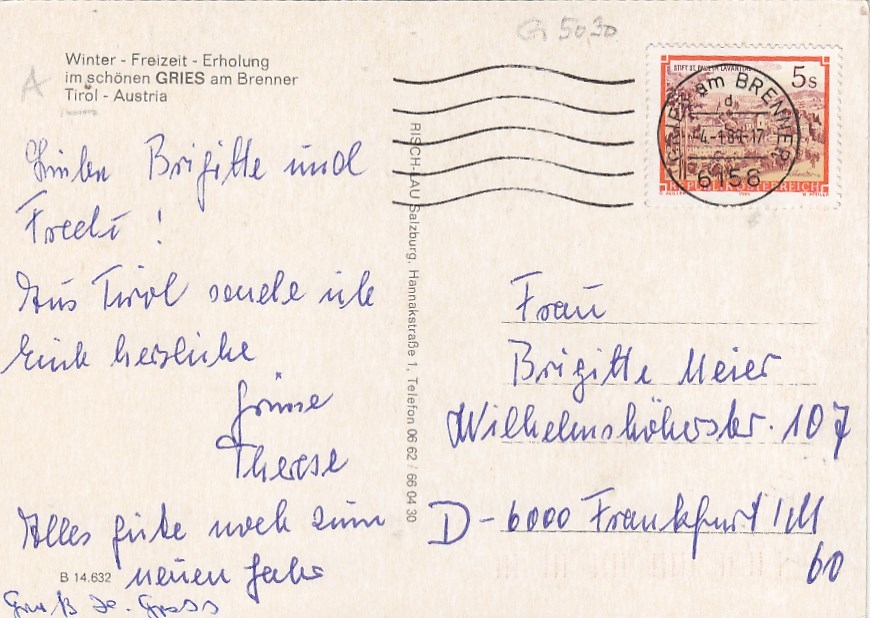 G 5030
A
Winter - Freizeit - Erholung
im schönen GRIES am Brenner
Tirol - Austria
Lieben Brigitte und
Fredi !
Aus Tirol sende ich
Euch herzliche
Grüsse
Therese
Alles gute noch zum
neuen Jahr
B 14.632
Gruß
RISCH-LAU Salzburg, Hannakstraße 1, Telefon 06 62 / 66 04 30
STIFT ST. PAUL IM LAVANTTAL
5s
REPUBLIK ÖSTERREICH
GRIES am BRENNER
d
6156
Frau
Brigitte Meier
Wilhelmshöherstr. 107
D-6000 Frankfurt/M
60